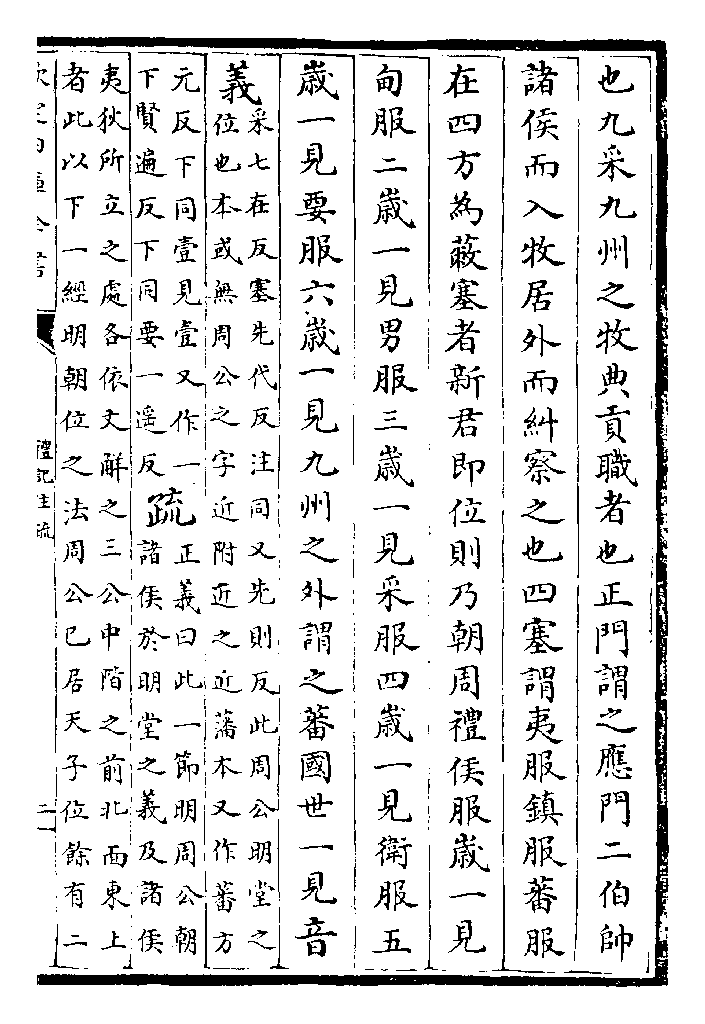 也九采九州之牧典貢職者也正門謂之應門二伯帥
諸侯而入牧居外而糾察之也四塞謂夷服鎮服蕃服
在四方為蔽塞者新君即位則乃朝周禮侯服歲一見
甸服二歲一見男服三歲一見采服四歲一見衛服五
歲一見要服六歲一見九州之外謂之蕃國世一見音
義采七在反塞先代反注同又先則反此周公明堂之
位也本或無周公之字近附近之近藩本又作蕃方
元反下同壹見壹又作一
下賢遍反下同要一遥反
疏正義曰此一節明周公朝
諸侯於明堂之義及諸侯
夷狄所立之處各依文解之三公中階之前北面東上
者此以下一經明朝位之法周公已居天子位餘有二
欽定四庫全書
禮記注疏
二